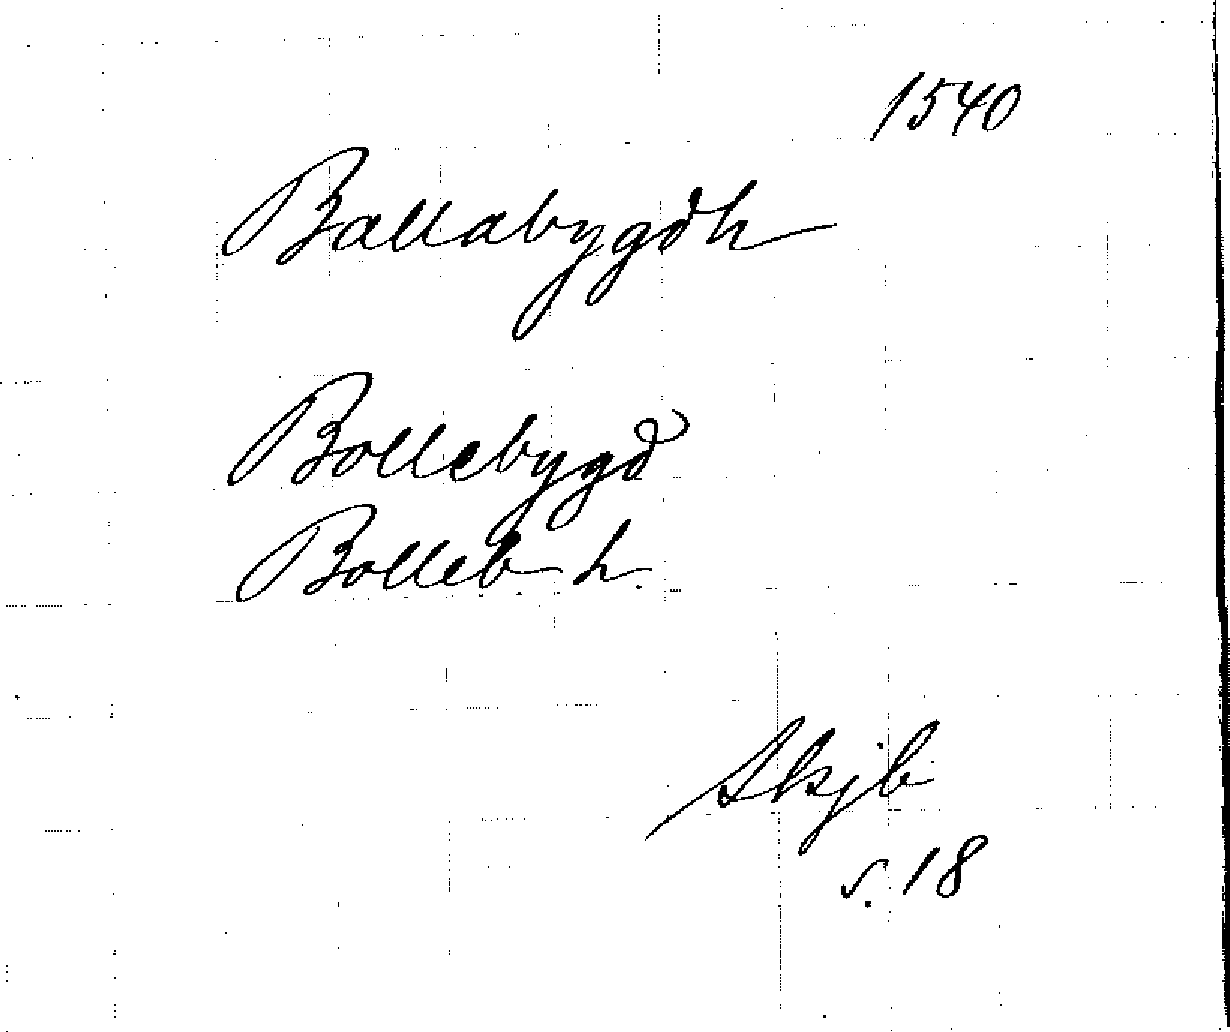 1540
Ballabygdh
Bollebygd
Bolleb. h.
Skjb
s. 18